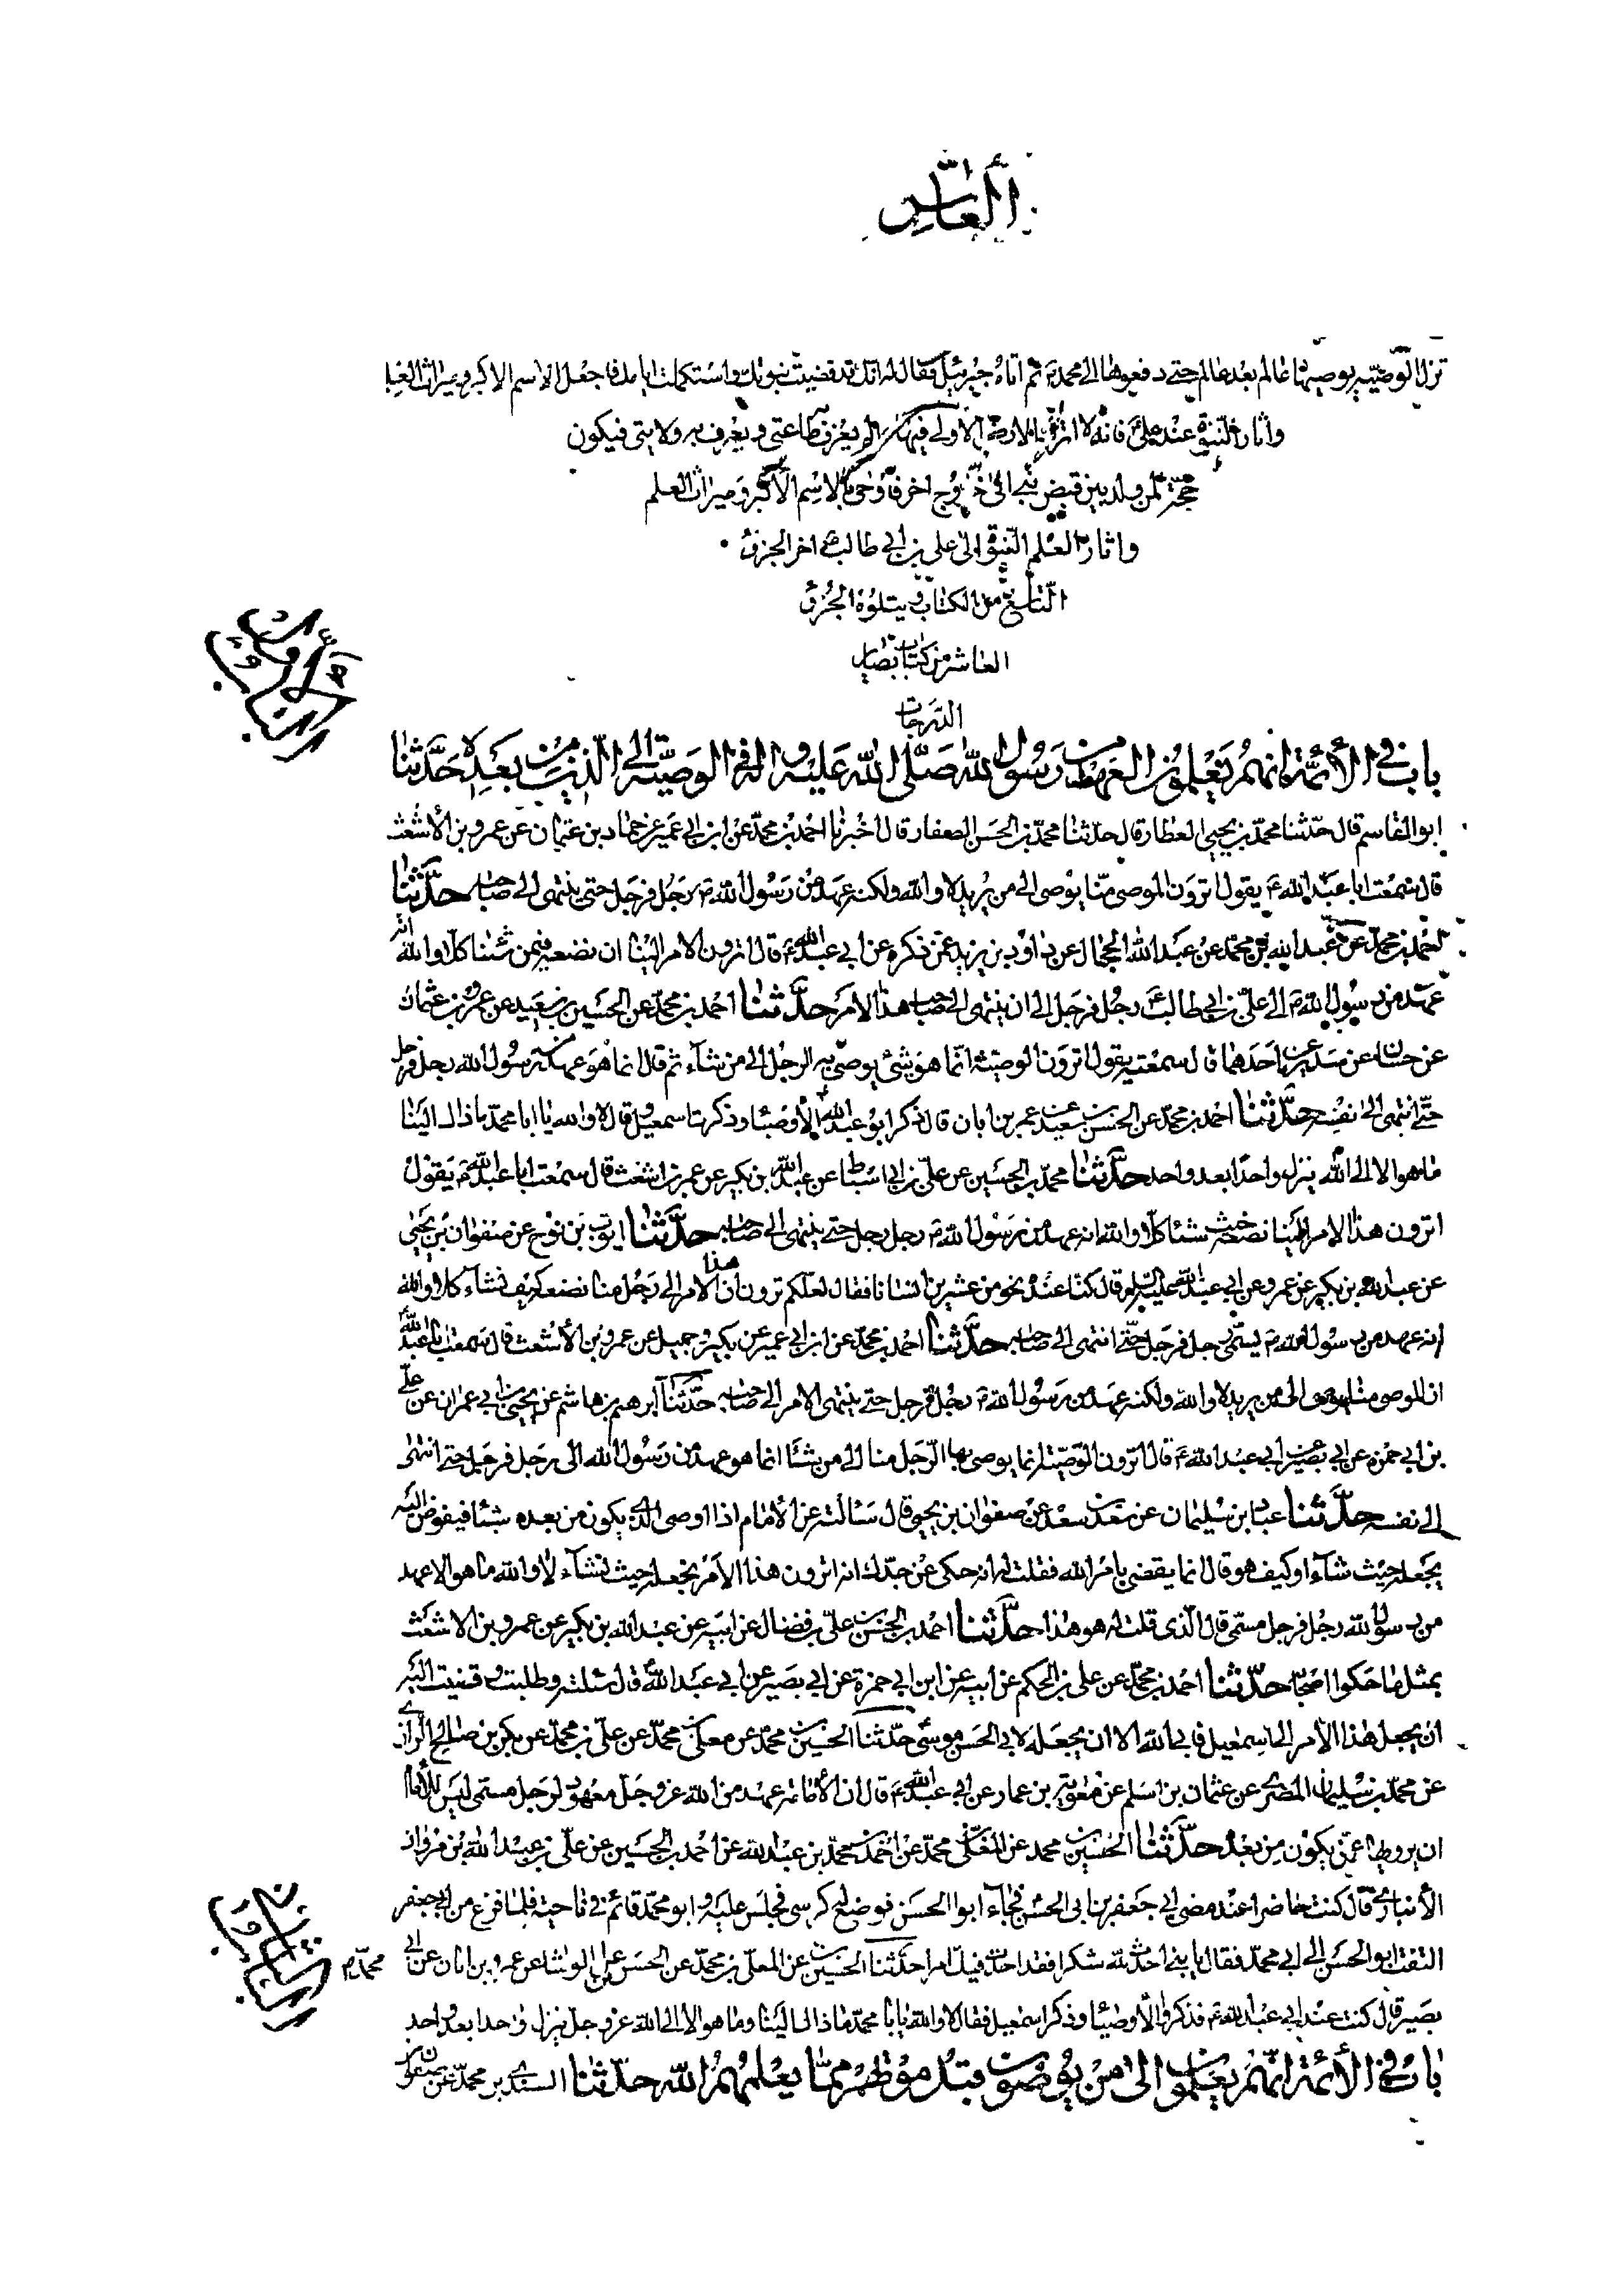 العاشر
تزل الوصية يوصي بها عالم بعد عالم حتى دفعوها الى محمد ص ثم اتاه جبرئيل فقال له انك قد قضيت نبوتك واستكملت ايامك فاجعل الاسم الاكبر وميراث العلم
واثار النبوة عند علي ع فانه لا اترك الارض الا ولي فيها عالم يعرف طاعتي ويعرف به ولايتي فيكون
حجة لمن ولد بين قبض نبي الى خروج اخر فاوحى بالاسم الاكبر وميراث العلم
واثار العلم النبوة الى علي بن ابي طالب ع اخر الجزؤ
التاسع من الكتاب ويتلوه الجزؤ
العاشر من كتاب بصاير
الدرجات
باب في الأئمة انهم يعلمون العهد من رسول الله صلى الله عليه واله في الوصية الى الذين من بعده حدثنا
ابو القاسم قال حدثنا محمد بن يحيى العطار قال حدثنا محمد بن الحسن الصفار قال اخبرنا احمد بن محمد عن ابن ابي عمير عن حماد بن عثمان عن عمرو بن الأشعث
قال سمعت ابا عبد الله ع يقول اترون الموصي منا يوصي الى من يريد لا والله ولكنه عهد من رسول الله ص رجل فرجل حتى ينتهي الى صاحبه حدثنا
احمد بن محمد عن عبد الله بن محمد عن عبد الله الحجال عن داود بن يزيد عمن ذكره عن ابي عبد الله ع قال اترون الامر الينا ان نضعه فيمن شئنا كلا والله انه
عهد من رسول الله ص الى علي بن ابي طالب ع رجل فرجل الى ان ينتهي الى صاحب هذا الامر حدثنا احمد بن محمد عن الحسين بن سعيد عن عمرو بن عثمان
عن حنان عن سدير عن احدهما قال سمعته يقول اترون الوصية انما هو شئ يوصي به الرجل الى من شاء ثم قال انما هو عهد من رسول الله رجل فرجل
حتى انتهى الى نفسه حدثنا احمد بن محمد عن الحسن بن سعيد عن عمر بن ابان قال ذكر ابو عبد الله ع الأوصياء وذكرت اسمعيل وقال لا والله يا ابا محمد ما ذاك الينا
ما هو الا الى الله ينزل واحدا بعد واحد حدثنا محمد بن الحسين عن علي بن اسباط عن عبد الله بن بكير عن عمر بن اشعث قال سمعت ابا عبد الله ع يقول
اترون هذا الامر الينا نضعه حيث شئنا كلا والله انه عهد من رسول الله ص رجل رجل حتى ينتهي الى صاحبه حدثنا ايوب بن نوح عن صفوان بن يحيى
عن عبد الله بن بكير عن عمرو عن ابي عبد الله عليه السلم قال كنا عنده نحو من عشرين انسانا فقال لعلكم ترون ان هذا الامر الى رجل منا نضعه كيف نشاء كلا والله
انه عهد من رسول الله ص يسمى رجل فرجل حتى انتهى الى صاحبه حدثنا احمد بن محمد عن ابن ابي عمير عن بكير وجميل عن عمرو بن الأشعث قال سمعت ابا عبد الله ع
ان الموصي منا يوصي الى من يريد لا والله ولكنه عهد من رسول الله ص رجل فرجل حتى ينتهي الامر الى صاحبه حدثنا ابرهيم بن هاشم عن يحيى بن ابي عمران عن علي
بن ابي حمزه عن ابي بصير عن ابي عبد الله ع قال اترون الوصية انما يوصي بها الرجل منا الى من شاء انما هو عهد من رسول الله الى رجل فرجل حتى انتهى
الى نفسه حدثنا عباد بن سليمان عن سعد بن سعد عن صفوان بن يحيى قال سئالته عن الأمام اذا اوصى الى الذي يكون من بعده شيئا فيفوض اليه
يجعله حيث شاء او كيف هو قال انما يقضي بامر الله فقلت له انه حكي عن جدك انه اترون هذا الأمر نجعله حيث نشاء لا والله ما هو الا عهد
من رسول الله رجل فرجل مسمى قال الذي قلت له هو هذا حدثنا احمد بن الحسن بن علي بن فضال عن ابيه عن عبد الله بن بكير عن عمرو بن الاشعث
بمثل ما حكوا اصحابنا حدثنا احمد بن محمد عن علي بن الحكم عن ابيه عن ابن ابي حمزة عن ابي بصير عن ابي عبد الله ع قال سئلته وطلبت وقضيت اليه
ان يجعل هذا الأمر الى اسمعيل فابى الله الا ان يجعله لابي الحسن موسى حدثنا الحسين بن محمد عن معلى بن محمد عن علي بن محمد عن بكر بن صالح الرازي
عن محمد بن سليمان المصري عن عثمان بن اسلم عن معوية بن عمار عن ابي عبد الله ع قال ان الأمامة عهد من الله عز وجل معهود لرجل مسمى ليس للأمام
ان يزويها عمن يكون من بعده حدثنا الحسين بن محمد عن المعلى بن محمد عن احمد بن محمد بن عبد الله عن احمد بن الحسين عن علي بن عبد الله بن مروان
الأنباري قال كنت حاضرا عند مضي ابي جعفر بن ابي الحسن فجاء ابو الحسن فوضع له كرسي فجلس عليه وابو محمد قائم في ناحية فلما فرغ من ابي جعفر
التفت ابو الحسن الى ابي محمد فقال يا بني احدث لله شكرا فقد احدث فيك امرا حدثنا الحسين بن محمد عن المعلى بن محمد عن الحسن بن علي الوشاء عن عمر بن ابان عن ابي
بصير قال كنت عند ابي عبد الله ع فذكروا الأوصياء وذكر اسمعيل فقال لا والله يا ابا محمد ما ذاك الينا وما هو الا الى الله عز وجل ينزل واحدا بعد واحد
باب في الأئمة انهم يعلمون الى من يوصون قبل موتهم مما يعلمهم الله حدثنا السندي بن محمد عن صفوان